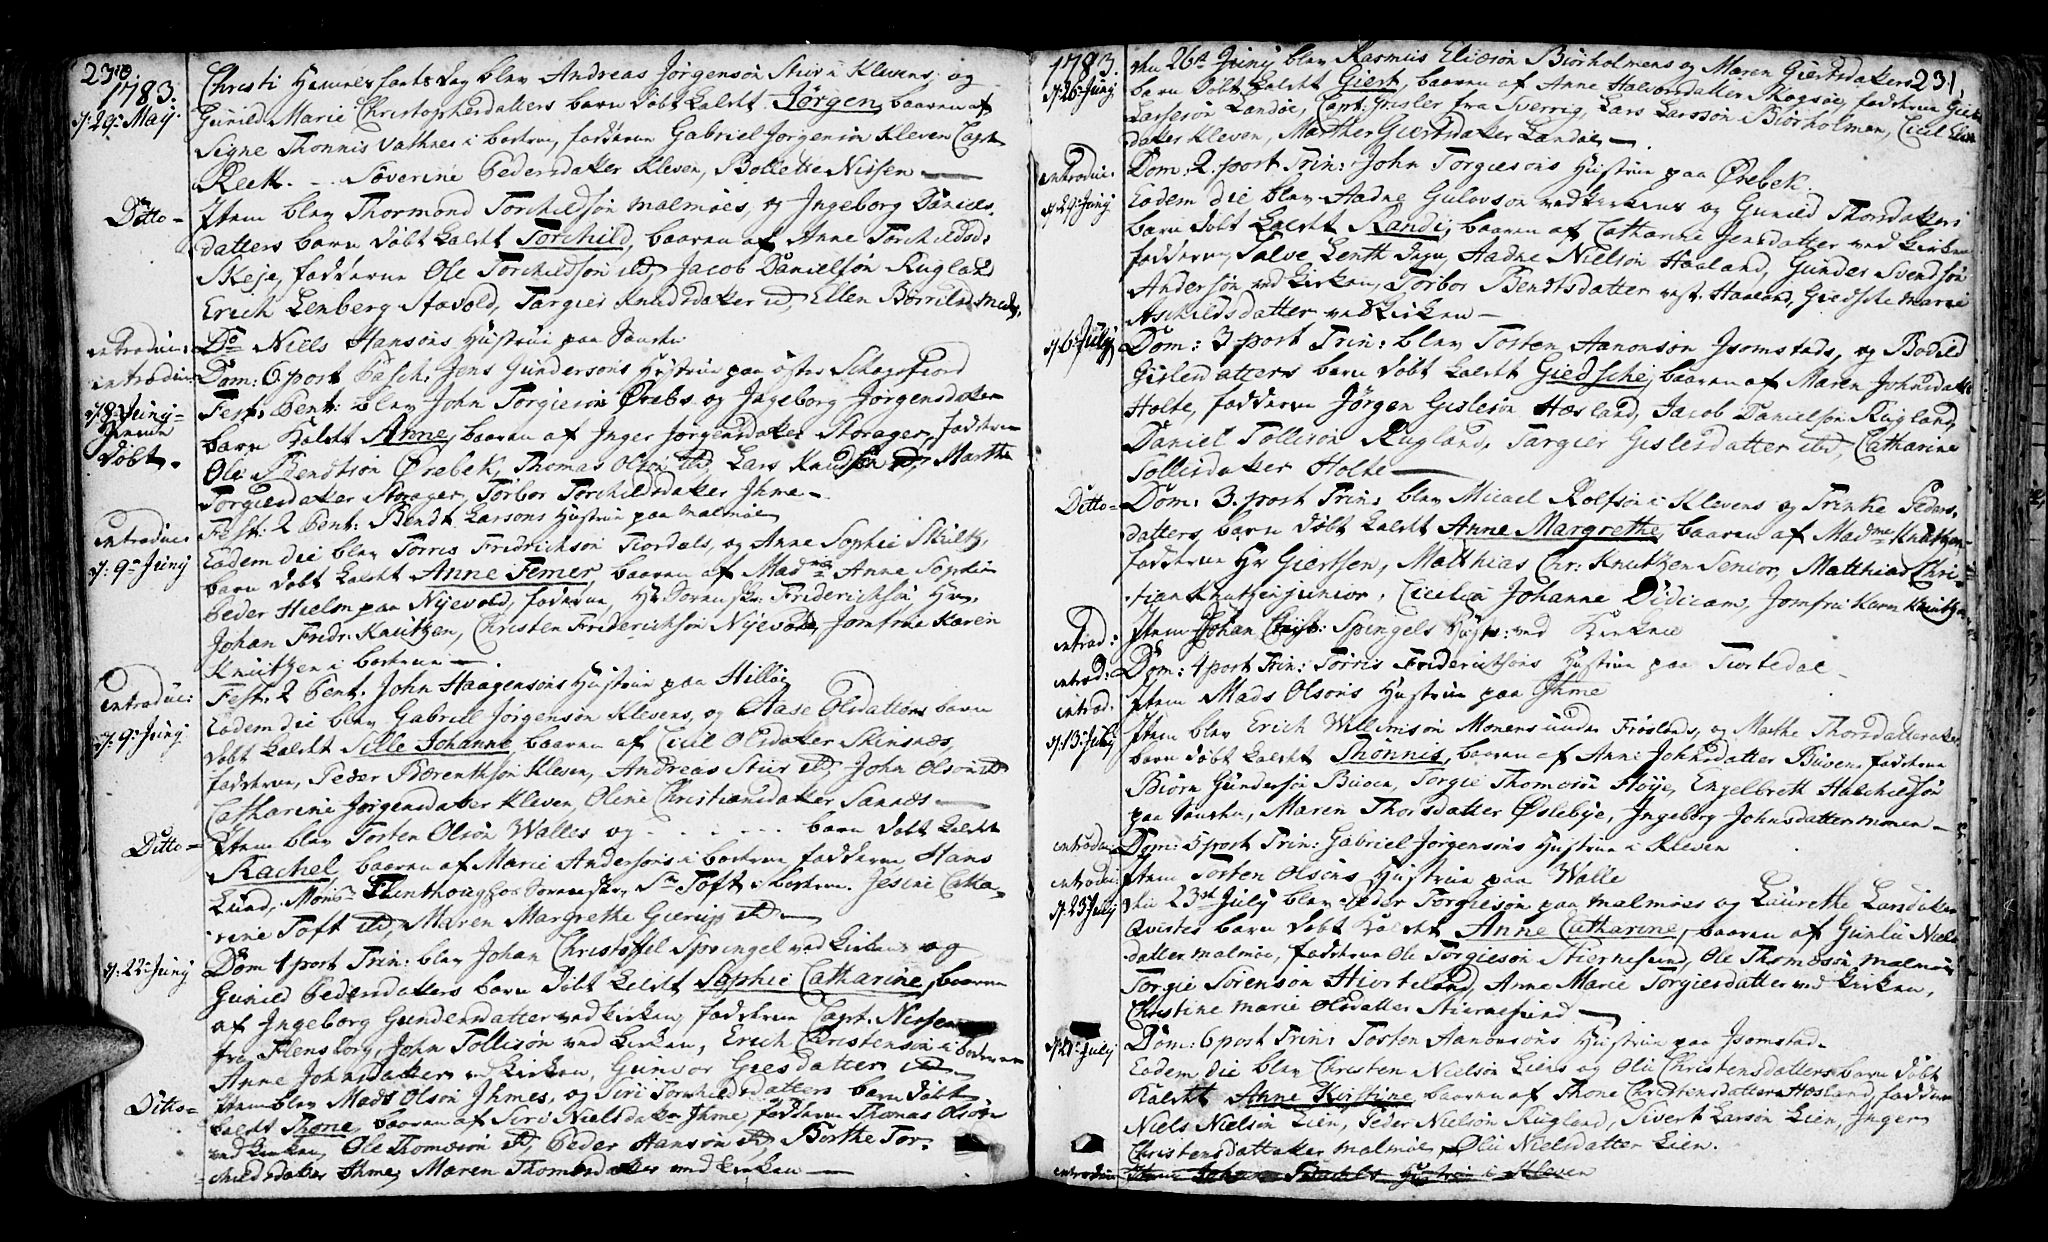 230
1783.
d: 29. Maij.
Christi Himmelfarts dag blev Andreas Jörgensön Stür i Klevens, og
Gunild Marie Christophersdatters barn döbt kaldt Jörgen, baaren af
Signe Thonnis Vathnes i boeten, fadderne Gabriel Jörgensön Kleven, Capt.
Reek. Severine Pedersdatter Kleven, Bollette Nissen
Ditto - Item blev Thormond Torchildsön Malmöes, og Ingeborg Daniels-
datters barn döbt kaldt Torchild, baaren af Anne Torchildsd:
Skeje, fadderne Ole Torchildsön ibd, Jacob Danielsön Rugland
Erich Lenberg Stavold, Targier Knudsdatter ibd, Ellen
introduc: Do Niels Hansöns Hustrue paa
introduc: Dom: 6. post Pasch: Jens Gundersöns Hustrue paa öster Schogsfiord
d. 8. Junij - Fest: Pent: blev John Torgiesön Örebs og Ingeborg Jörgensdatters
döbt. barn kaldt Anne, baaren af Inger Jörgensdatter Storager, fadderne
Ole Bendtsön Örebek, Thomas Olsön ibd, Lars Knudsen ibd, Marthe
Torgiesdatter Storager, Torbor Torchildsdatter Ihme.
introduc: Fest: 2 Pent: Bendt Larsöns Hustrue paa Malmöe
d. 9. Junij Eodem die blev Torris Fridrichsön Tiordals, og Anne Sophie
barn döbt kaldt Anne Femer, baaren af Madme Anne Sophie
Peder Hielm paa Nijevold, fadderne, Hr Friderichsön Hr.
Johan Fredr: Knutzen, Christen Friderichsön Nijevold, Jomfrue Karen
Knutzen i boeten
introduc: Fest: 2 Pent. John Haagensöns Hustrue paa Hillöe
d. 9. Junij Eodem die blev Gabriel Jörgensön Klevens, og Aase Olsdatters barn
döbt kaldt Sille Johanne, baaren af Cicil Olsdatter Skinsnæs,
fadderne, Peder Berenthsön Kleven, Andreas Stür ibd, John Olsön ibd
Catharine Jörgensdatter Kleven, Oline Christiansdatter Sannæs
Ditto - Item blev Torten Olsön Walles og . . . . . barn döbt kaldt
Rachel, baaren af Marie Andersöns i boeten fadderne Hans
Lund, Monsr Sr Toft i boeten. Jesine Catha-
rine Toft ibd, Maren Margrethe Gierup ibd
d. 22. Junij Dom 1 post Trin: blev Johan Christoffel Springel ved kirkens og
Gunild Pedersdatters barn döbt kaldt Sophie Catharine, baaren
af Ingeborg Gundersdatter ved kirken, fadderne Capt. Nissen
fra Flensborg, John Tollisön ved kirken, Erich Christensön i boeten
Anne Johnsdatter ved kirken, Gunvor Giesdatter ibd
Ditto - Item blev Mads Olsön Ihmes, og Siri Torchildsdatters barn döbt
kaldt Thone, baaren af Siri Nielsdatter Ihme, fadderne Thomas Olsön
ved kirken, Ole Thomesön ibd, Peder Hansön ibd, Borthe Tor-
childsdatter Ihme, Maren Thomesdatter ved kirken
231,
1783.
d. 26. Junij den 26de Junij blev Rasmus Eliesön Biörholmens og Maren Giertsdatters
barn döbt kaldt Giert, baaren af Anne Halvorsdatter Skogsöe, fadderne
Larsesön Landöe, Capt: Grisler fra Sverrig, Lars Larssön Biörholmen, Cicil
datter Kleven, Marthe Giertsdatter Landöe
introduc: Dom: 2. post Trin: John Torgiesöns Hustrue paa Örebek.
d. 29. Junij Eodem die blev Aadne Gulovsön ved kirkens og Gunild Thorsdatters
barn döbt kaldt Randi, baaren af Catharine Jensdatter ved kirken
fadderne, Salve Lenth, Aadne Nielsön Haaland, Gunder Svendsön
Andersön ved kirken, Torbor Bendtsdatter vest. Haaland, Giedsche Marie
Aschildsdatter ved kirken
d. 6. Julij Dom: 3 post Trin: blev Torten Aanonsön Isomstads, og Bodild
Gislesdatters barn döbt kaldt Giedsche, baaren af Maren Johnsdatter
Holte, fadderne Jörgen Gislesön Hæsland, Jacob Danielsön Rugland
Daniel Tollisön Rugland, Targier Gislesdatter ibd, Catharine
Tollisdatter Holte
Ditto - Dom: 3. post Trin: blev Micael Rolfsön i Klevens og Trinke Peders-
datters, barn döbt kaldt Anne Margrethe, baaren af Madme Knutzen
fadderne Hr Giertsen, Matthias Chr: Knutzen Senior, Matthias Chri-
stian Knutzen junior, Cicelia Johanne Didicam, Jomfru Karen Knutzen
introd: Item Johan Christ: Spingels Hust: ved Kirkene
introd: Dom: 4 post Trin: Torris Friderichsöns Hustrue paa Tiortedal
introd. Item Mads Olsöns Hustrue paa Ihme
d. 13. Julij Item blev Erich Willumsön Monens under Fröslands, og Marthe Thorsdatters
barn döbt kaldt Thonnis, baaren af Anne Johnsdatter Buven, fadderne
Biörn Gundersön Buen, Torgie Thomesön Höije, Engelbrett Halchildsön
paa, Maren Thorsdatter Öslebye, Ingeborg Johnsdatter Monen
introduc Dom: 5 post Trin: Gabriel Jörgensöns Hustrue i Kleven
introduc: Item Torten Olsöns Hustrue paa Walle
d. 23 Julij den 23de Julij blev Peder Torgiesön paa Malmöes og Laurethe Larsdatter
Qvistes barn döbt kaldt Anne Catharine, baaren af Gunlu Niels
datter Malmöe, fadderne Ole Torgiesön Stiernesund, Ole Thomesön Malmöe
Torgie Sörensön Hiorteland, Anne Marie Torgiesdatter ved kirken,
Christine Marie Olsdatter Stiernesund
d. 27. Julij Dom: 6 post Trin: Torten Aanonsöns Hustrue paa Isomstad
Eodem die blev Christen Nielsön Liens og Oliv Christensdatters barn döbt
kaldt Anne Kirstine, baaren af Thone Christensdatter Hæsland, fadderne
Niels Nielsön Lien, Peder Nielsön Rugland, Sivert Larsön Lien, Inger
Christensdatter Malmöe, Oliv Nielsdatter Lien.
introduc Hustrue i Kleven